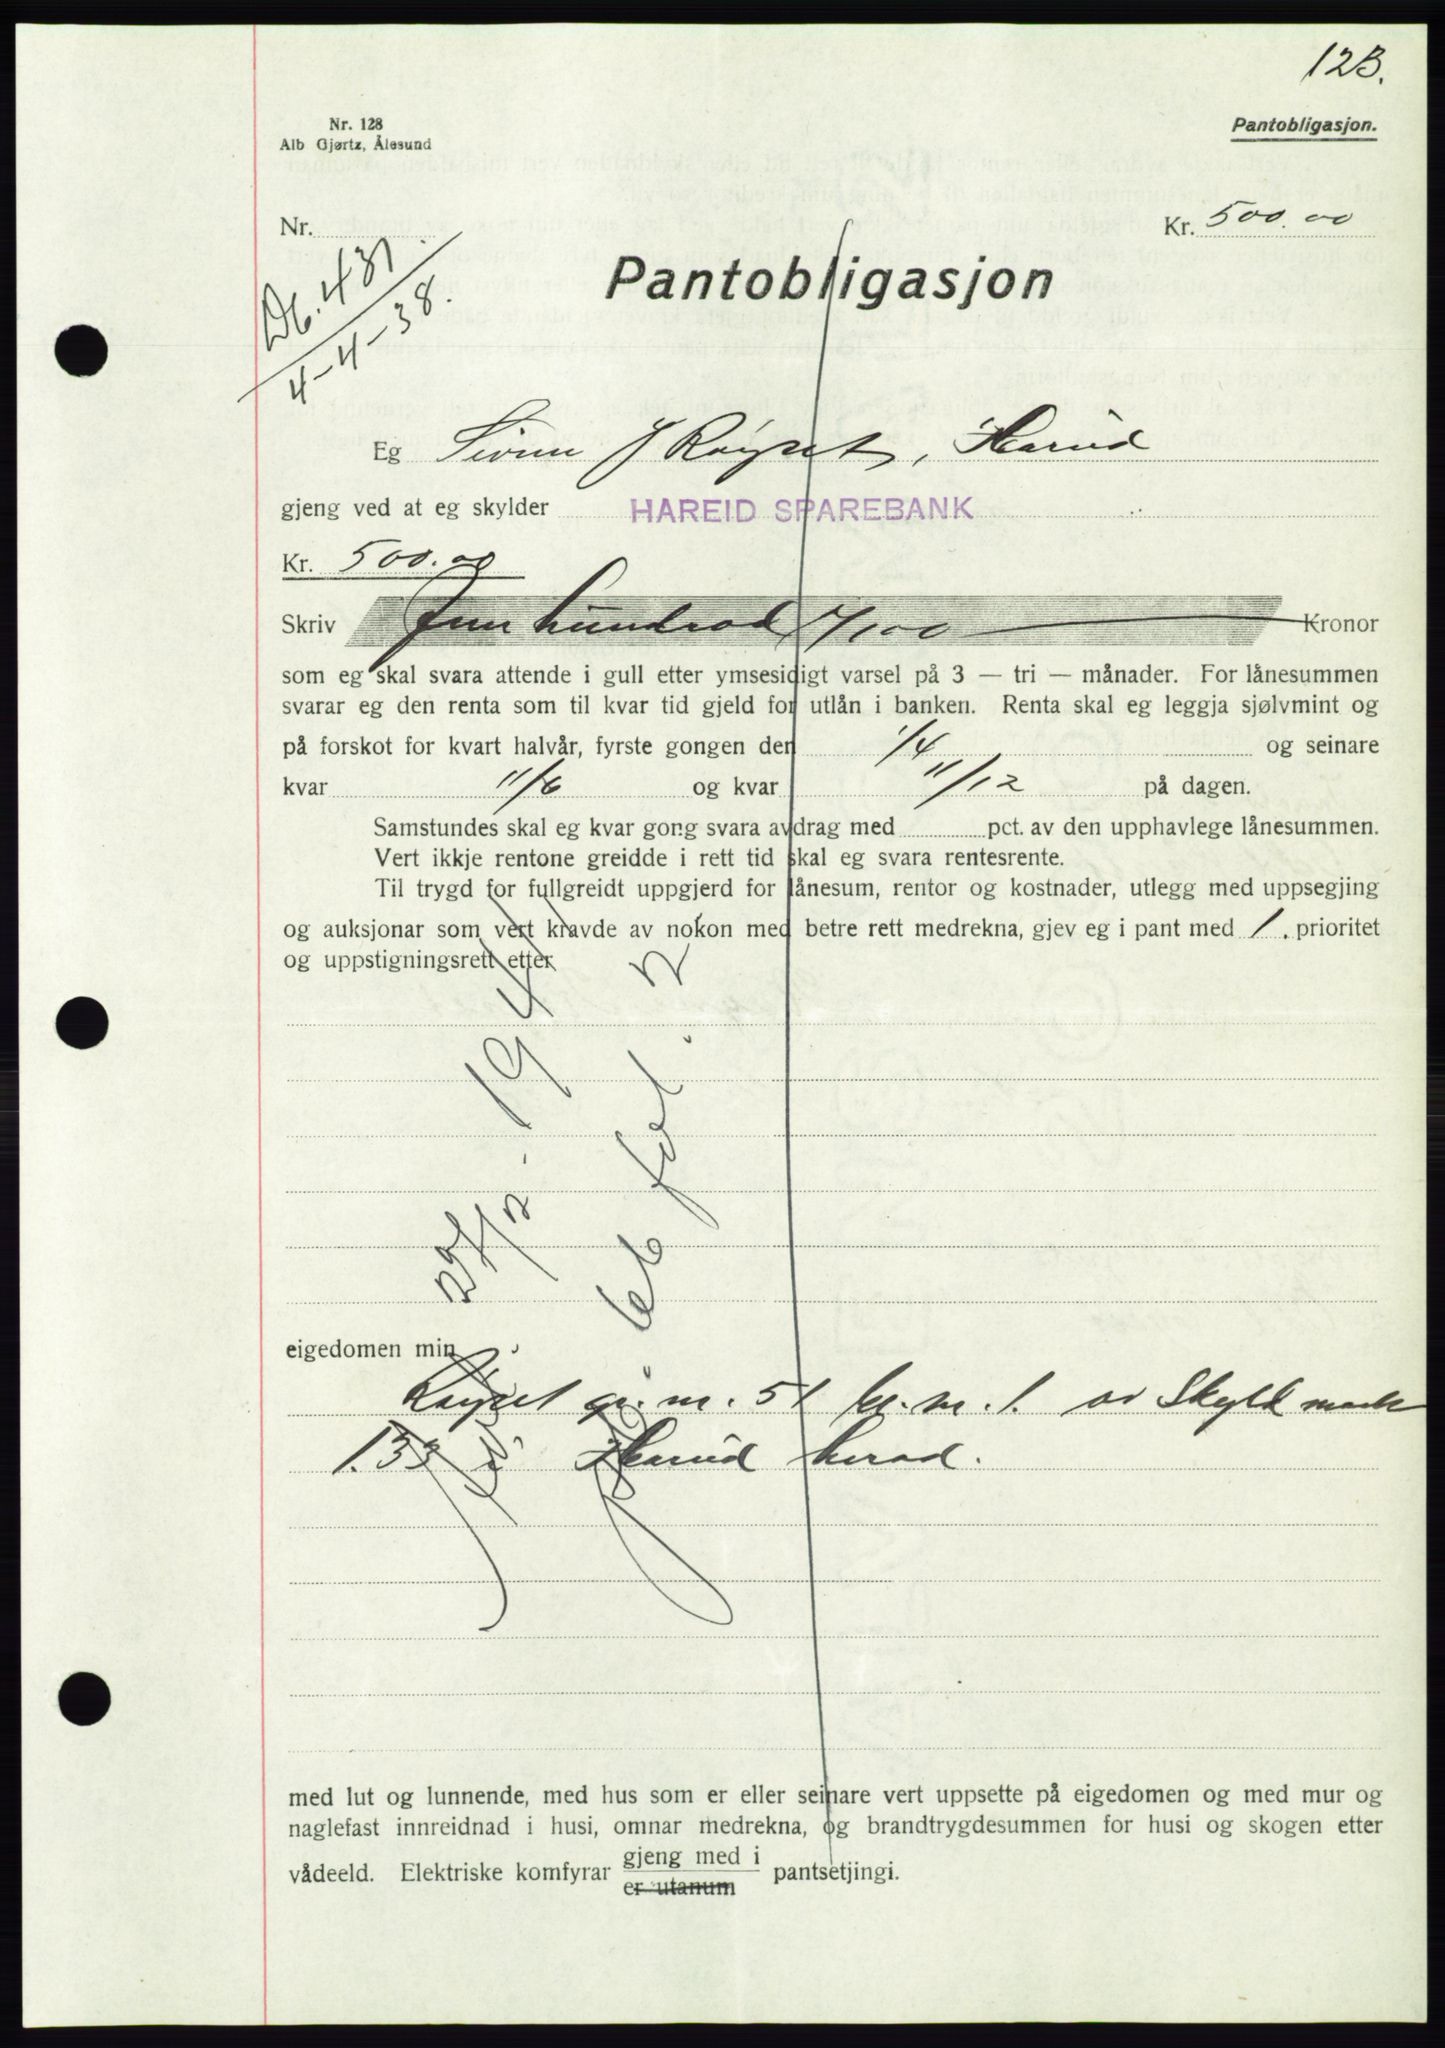 123.
Nr. 128
Alb Gjørtz, Ålesund
Pantobligasjon.
Nr.
Kr. 500.00
Db. 431
4-4-38.
Pantobligasjon
Eg J Røyset, Hareid
gjeng ved at eg skylder HAREID SPAREBANK
Kr. 500.00
Skriv Fem hundrad 0/100 Kronor
som eg skal svara attende i gull etter ymsesidigt varsel på 3 — tri — månader. For lånesummen
svarar eg den renta som til kvar tid gjeld for utlån i banken. Renta skal eg leggja sjølvmint og
på forskot for kvart halvår, fyrste gongen den 1/4 og seinare
kvar 11/6 og kvar 11/12 på dagen.
Samstundes skal eg kvar gong svara avdrag med pct. av den upphavlege lånesummen.
Vert ikkje rentone greidde i rett tid skal eg svara rentesrente.
Til trygd for fullgreidt uppgjerd for lånesum, rentor og kostnader, utlegg med uppsegjing
og auksjonar som vert kravde av nokon med betre rett medrekna, gjev eg i pant med 1. prioritet
og uppstigningsrett etter
eigedomen min
Røyset gr. nr. 51 br. nr. 1. av Skyld mark
1.33 i Hareid herad.
med lut og lunnende, med hus som er eller seinare vert uppsette på eigedomen og med mur og
naglefast innreidnad i husi, omnar medrekna, og brandtrygdesummen for husi og skogen etter
vådeeld. Elektriske komfyrar gjeng med i pantsetjingi.
er utanum